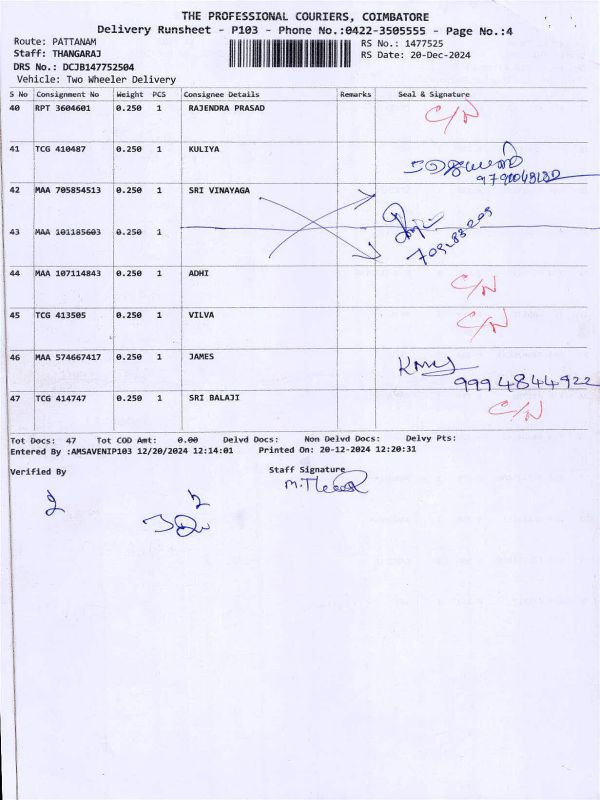 THE PROFESSIONAL COURIERS, COIMBATORE
Delivery Runsheet - P103 - Phone No.:0422-3505555 - Page No.:4
Route: PATTANAM RS No.: 1477525
Staff: THANGARAJ RS Date: 20-Dec-2024
DRS No.: DCJB147752504
Vehicle: Two Wheeler Delivery
S No Consignment No Weight PCS Consignee Details Remarks Seal & Signature
40 RPT 3604601 0.250 1 RAJENDRA PRASAD C/N
41 TCG 410487 0.250 1 KULIYA
42 MAA 705854513 0.250 1 SRI VINAYAGA
43 MAA 101185603 0.250 1
44 MAA 107114843 0.250 1 ADHI C/N
45 TCG 413505 0.250 1 VILVA C/N
46 MAA 574667417 0.250 1 JAMES
9994844922
47 TCG 414747 0.250 1 SRI BALAJI C/N
Tot Docs: 47 Tot COD Amt: 0.00 Delvd Docs: Non Delvd Docs: Delvy Pts:
Entered By :AMSAVENIP103 12/20/2024 12:14:01 Printed On: 20-12-2024 12:20:31
Verified By Staff Signature